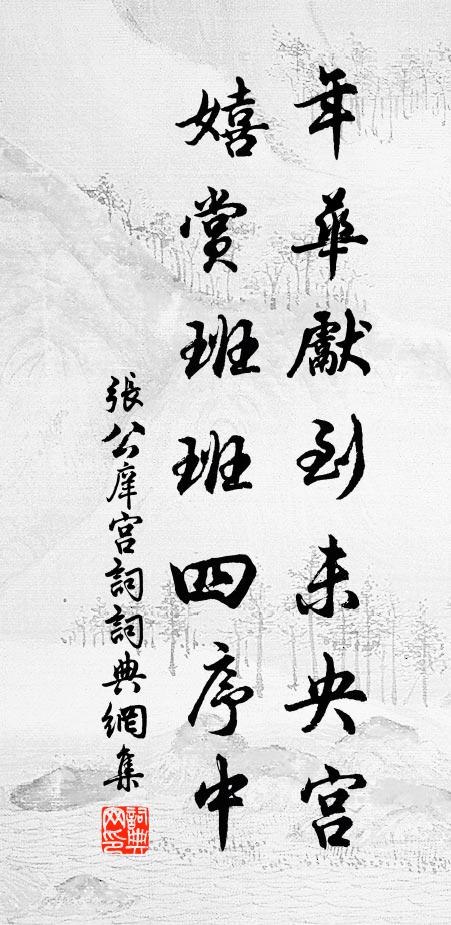 年華獻到未央宮
嬉賞班班四序中
張公庠宮詞詞典網集
詞典网印